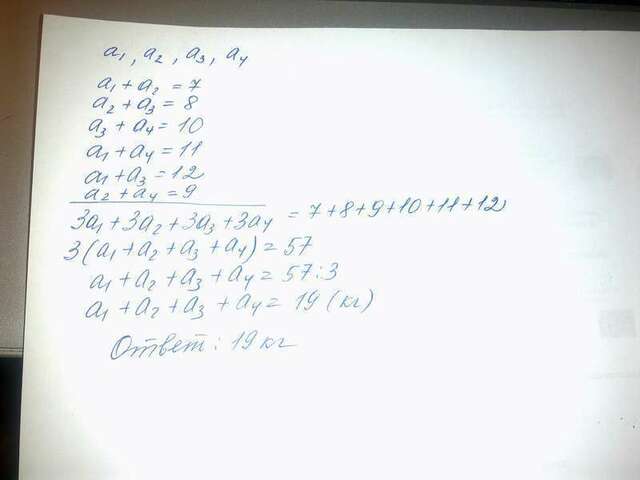 a₁, a₂, a₃, a₄
a₁ + a₂ = 7
a₂ + a₃ = 8
a₃ + a₄ = 10
a₁ + a₄ = 11
a₁ + a₃ = 12
a₂ + a₄ = 9
3a₁ + 3a₂ + 3a₃ + 3a₄ = 7+8+9+10+11+12
3(a₁ + a₂ + a₃ + a₄) = 57
a₁ + a₂ + a₃ + a₄ = 57:3
a₁ + a₂ + a₃ + a₄ = 19 (кг)
Ответ: 19 кг